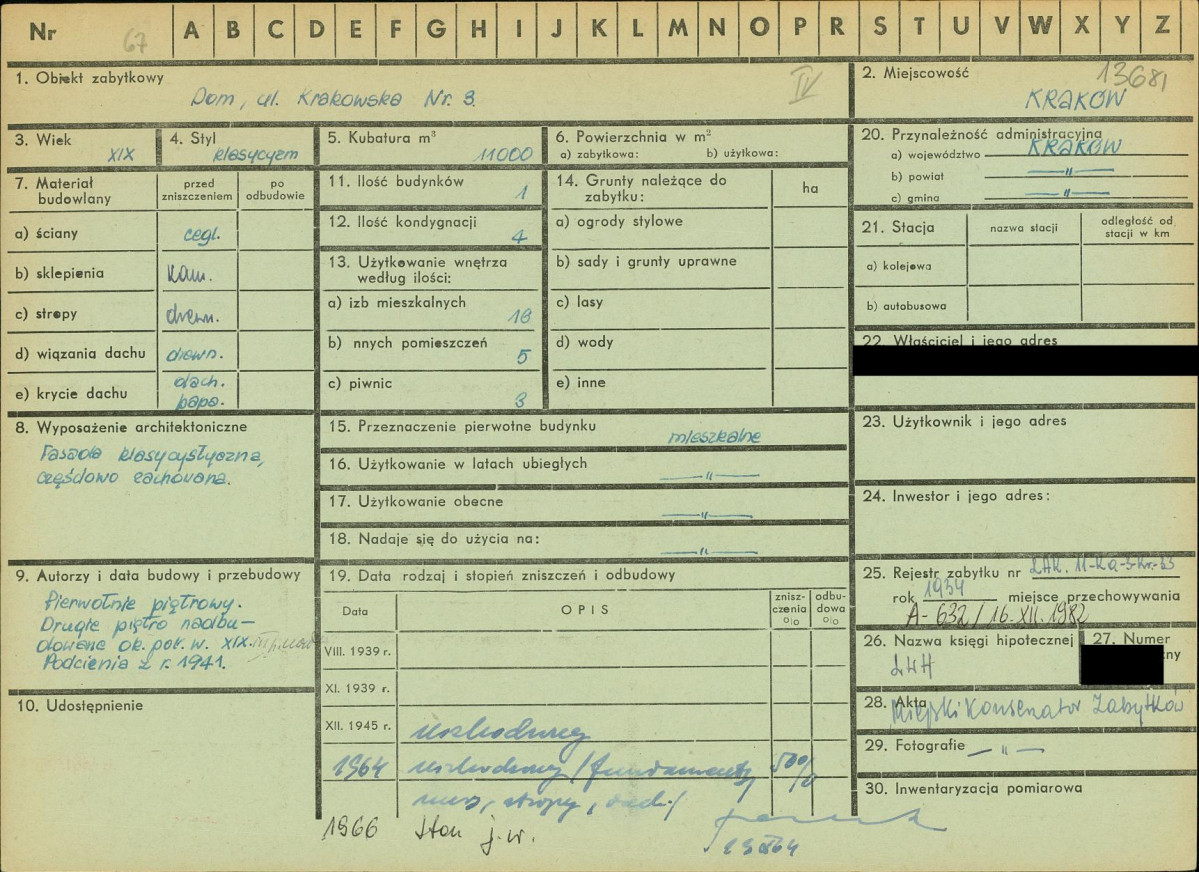 Nr 67 A B C D E F G H I J K L M N O P R S T U V W X Y Z
1. Obiekt zabytkowy
Dom, ul. Krakowska Nr. 3.
IV
2. Miejscowość
13681
KRAKÓW
3. Wiek
XIX
4. Styl
klasycyzm
5. Kubatura m³
11000
6. Powierzchnia w m²
a) zabytkowa: b) użytkowa:
20. Przynależność administracyjna
a) województwo KRAKÓW
b) powiat —"—
c) gmina —"—
7. Materiał budowlany
przed zniszczeniem
po odbudowie
a) ściany cegl.
b) sklepienia kam.
c) stropy drewn.
d) wiązania dachu drewn.
e) krycie dachu dach. papa.
11. Ilość budynków 1
12. Ilość kondygnacji 4
13. Użytkowanie wnętrza
według ilości:
a) izb mieszkalnych 18
b) nnych pomieszczeń 5
c) piwnic 3
14. Grunty należące do
zabytku:
ha
a) ogrody stylowe
b) sady i grunty uprawne
c) lasy
d) wody
e) inne
21. Stacja
nazwa stacji
odległość od
stacji w km
a) kolejowa
b) autobusowa
22. Właściciel i jego adres
8. Wyposażenie architektoniczne
Fasada klasycystyczna,
częściowo zachowana.
15. Przeznaczenie pierwotne budynku
mieszkalne
16. Użytkowanie w latach ubiegłych —"—
17. Użytkowanie obecne —"—
18. Nadaje się do użycia na: —"—
23. Użytkownik i jego adres
24. Inwestor i jego adres:
9. Autorzy i data budowy i przebudowy
Pierwotnie piętrowy.
Drugie piętro nadbu-
dowane ok. poł. w. XIX.
Podcienia z r. 1941.
10. Udostępnienie
19. Data rodzaj i stopień zniszczeń i odbudowy
Data
OPIS
znisz-
czenia
%
odbu-
dowa
%
VIII. 1939 r.
XI. 1939 r.
XII. 1945 r. uszkodzony
1964 uszkodzony /fundamenty 50%
mury, stropy, dach/
1966 Stan j.w.
25. Rejestr zabytku nr
rok 1934 miejsce przechowywania
A-632/16.XII.1982
26. Nazwa księgi hipotecznej
LWH
27. Numer
28. Akta
Miejski Konserwator Zabytków
29. Fotografie —"—
30. Inwentaryzacja pomiarowa